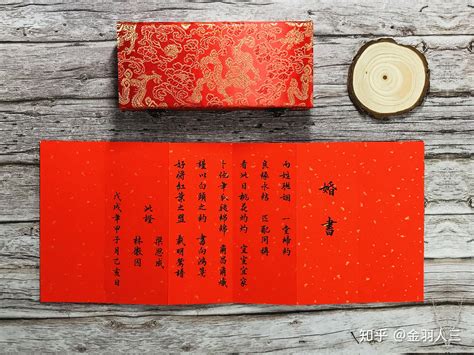 婚書
两姓聯姻 一堂締約
良緣永結 匹配同稱
看此日桃花灼灼 宜室宜家
卜他年瓜瓞綿綿 爾昌爾熾
謹以白頭之約 書向鴻箋
好將紅葉之盟 載明鴛譜
此證
梁思成
林徽因
戊戌年甲子月乙亥日
知乎 @金羽人三